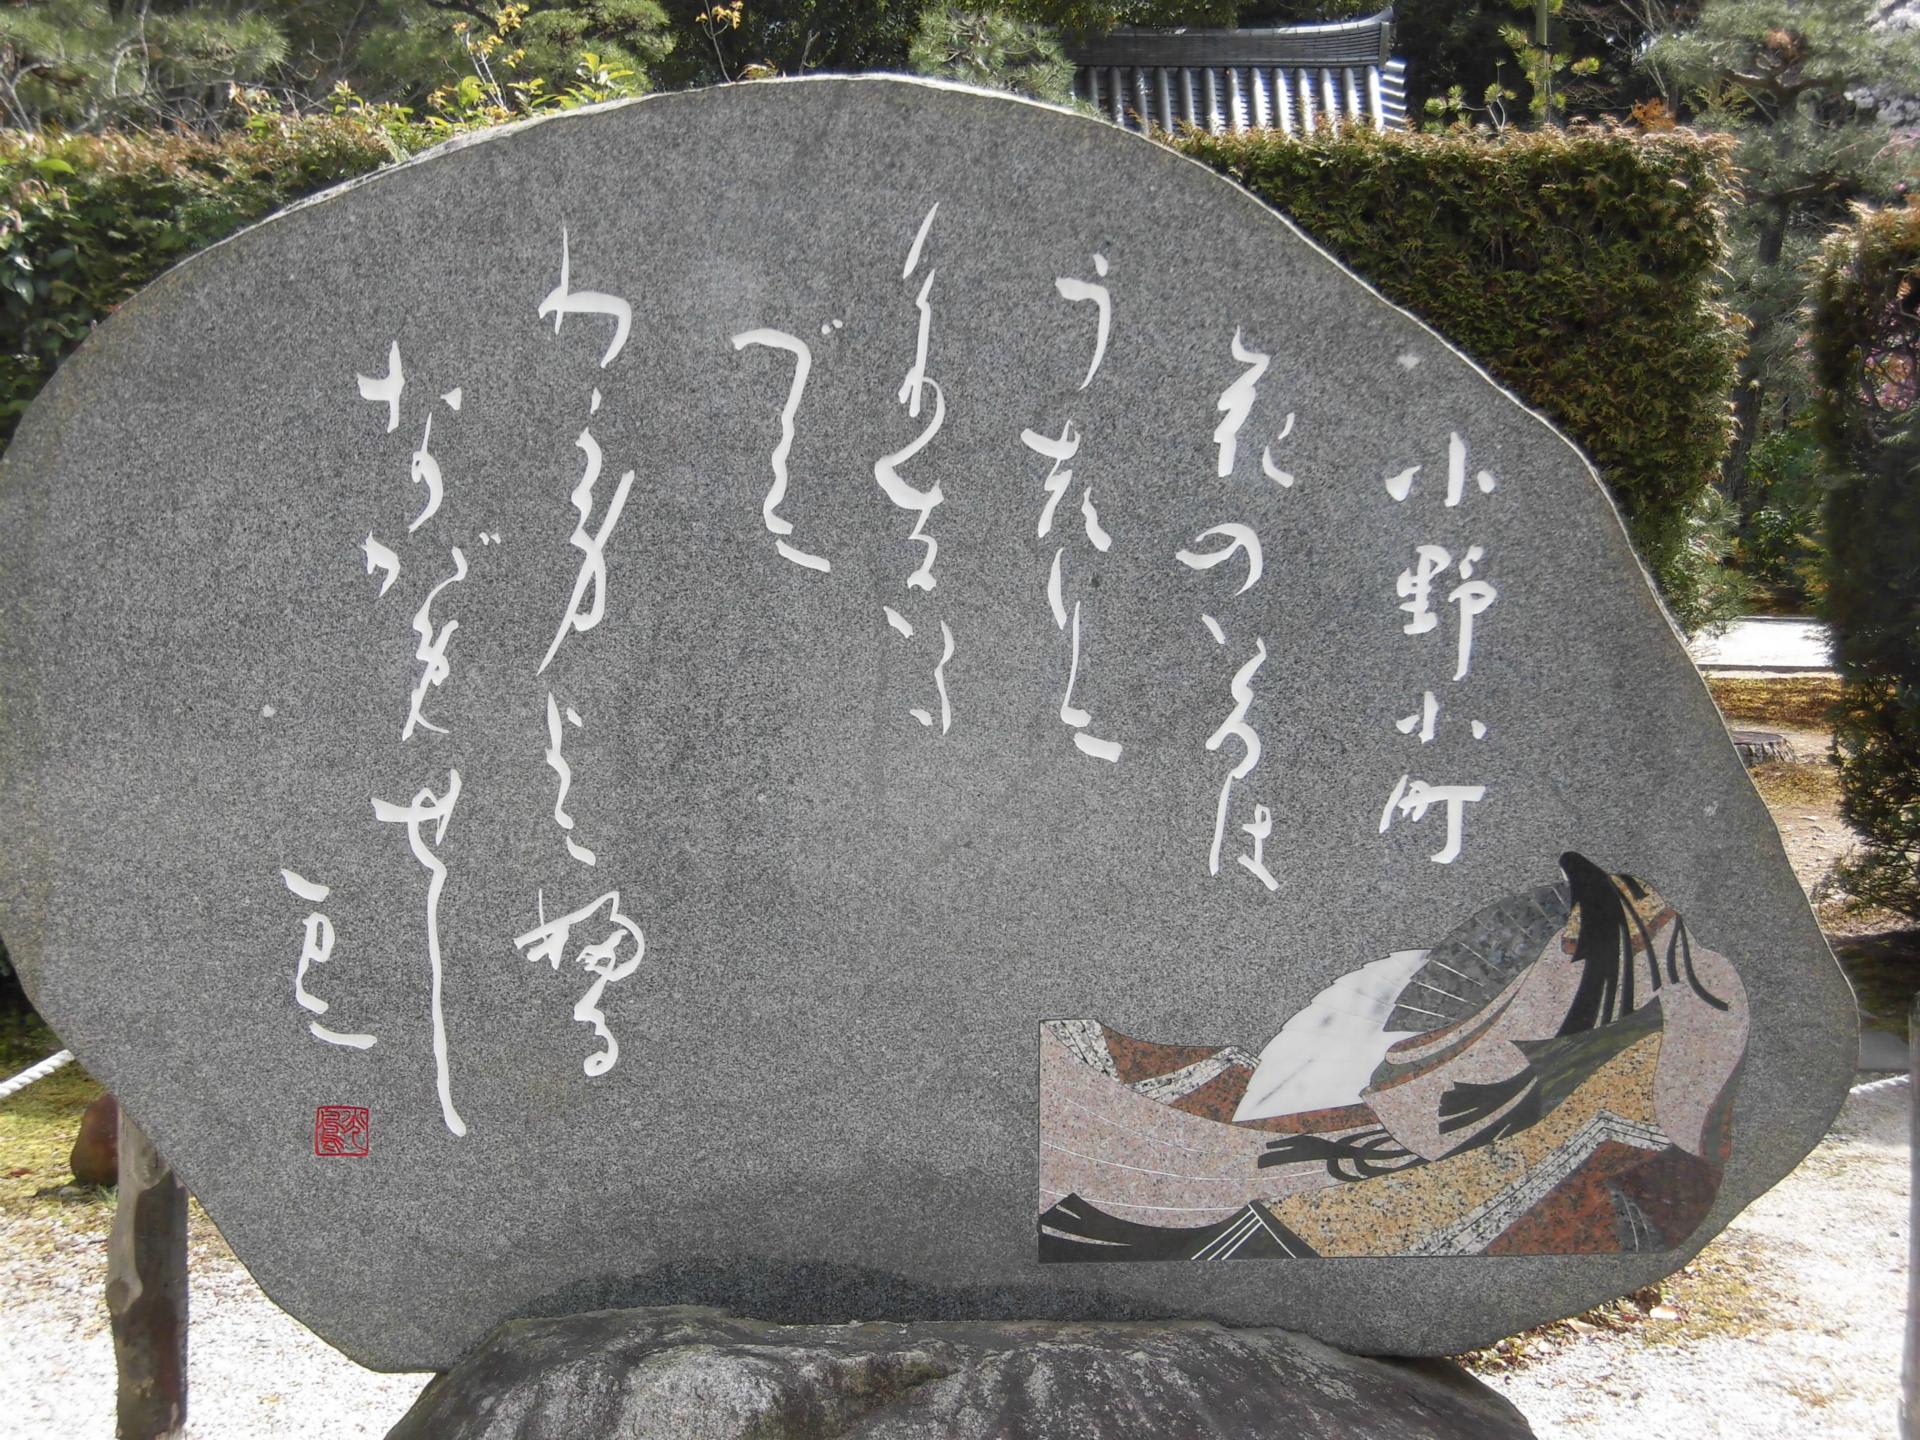 小野小町
花のいろは
うつりに
けりないた
づらに
わが身よにふる
ながめせし
まに